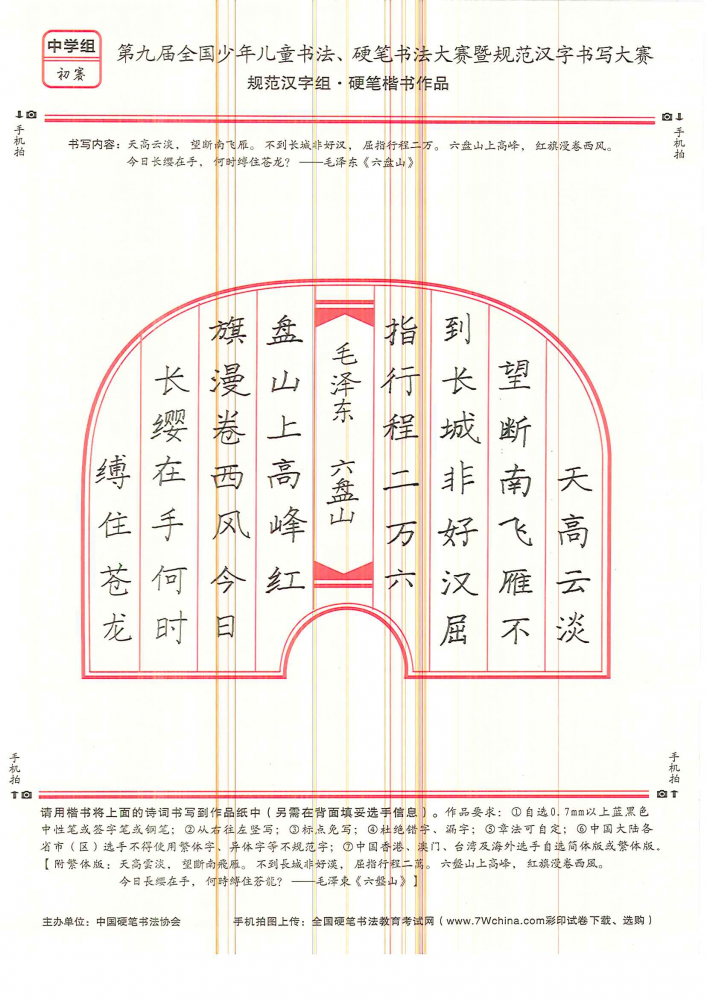 中学组
初赛
第九届全国少年儿童书法、硬笔书法大赛暨规范汉字书写大赛
规范汉字组·硬笔楷书作品
手机拍
手机拍
书写内容：天高云淡， 望断南飞雁。 不到长城非好汉， 屈指行程二万。 六盘山上高峰， 红旗漫卷西风。
今日长缨在手， 何时缚住苍龙？ ——毛泽东《六盘山》
天高云淡
望断南飞雁不
到长城非好汉屈
指行程二万六
毛泽东 六盘山
盘山上高峰红
旗漫卷西风今日
长缨在手何时
缚住苍龙
手机拍
手机拍
请用楷书将上面的诗词书写到作品纸中（另需在背面填妥选手信息）。作品要求：①自选0.7mm以上蓝黑色
中性笔或签字笔或钢笔；②从右往左竖写；③标点免写；④杜绝错字、漏字；⑤章法可自定；⑥中国大陆各
省市（区）选手不得使用繁体字、异体字等不规范字；⑦中国香港、澳门、台湾及海外选手自选简体版或繁体版。
【附繁体版：天高雲淡， 望斷南飛雁。 不到長城非好漢， 屈指行程二萬。 六盤山上高峰， 紅旗漫卷西風。
今日長纓在手， 何時縛住蒼龍？ ——毛澤東《六盤山》】
主办单位：中国硬笔书法协会
手机拍图上传：全国硬笔书法教育考试网（www.7Wchina.com彩印试卷下载、选购）